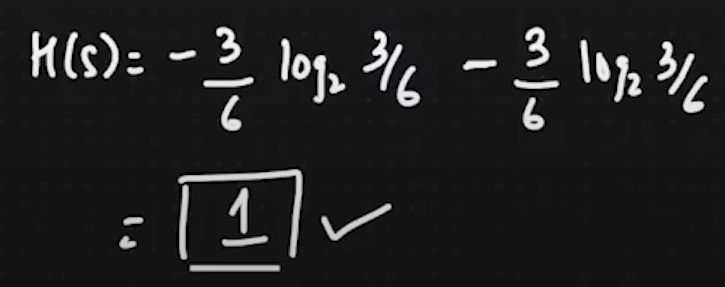 H(S) = - 3/6 log₂ 3/6 - 3/6 log₂ 3/6
= 1 ✓